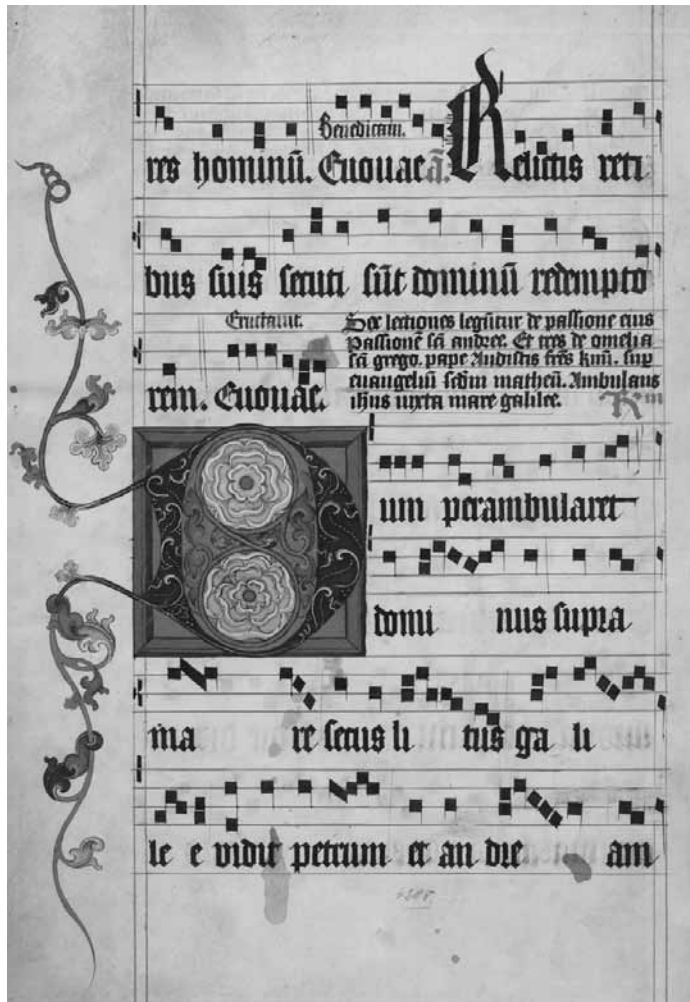 Benedicam.
res hominū. Euouae ā. Relictis reti
bus suis secuti sūt dominū redempto
Eructauit.
rem. Euouae.
Hee lectiones legūtur de passione eius
Passione sā andree. Et tres de omelia
sā grego. pape Audistis frēs kmī. sup
euangeliū scdm matheū. Ambulans
ihus iuxta mare galilee.
um perambularet
domi nus supra
ma re secus li tus ga li
le e vidit petrum et an dre am